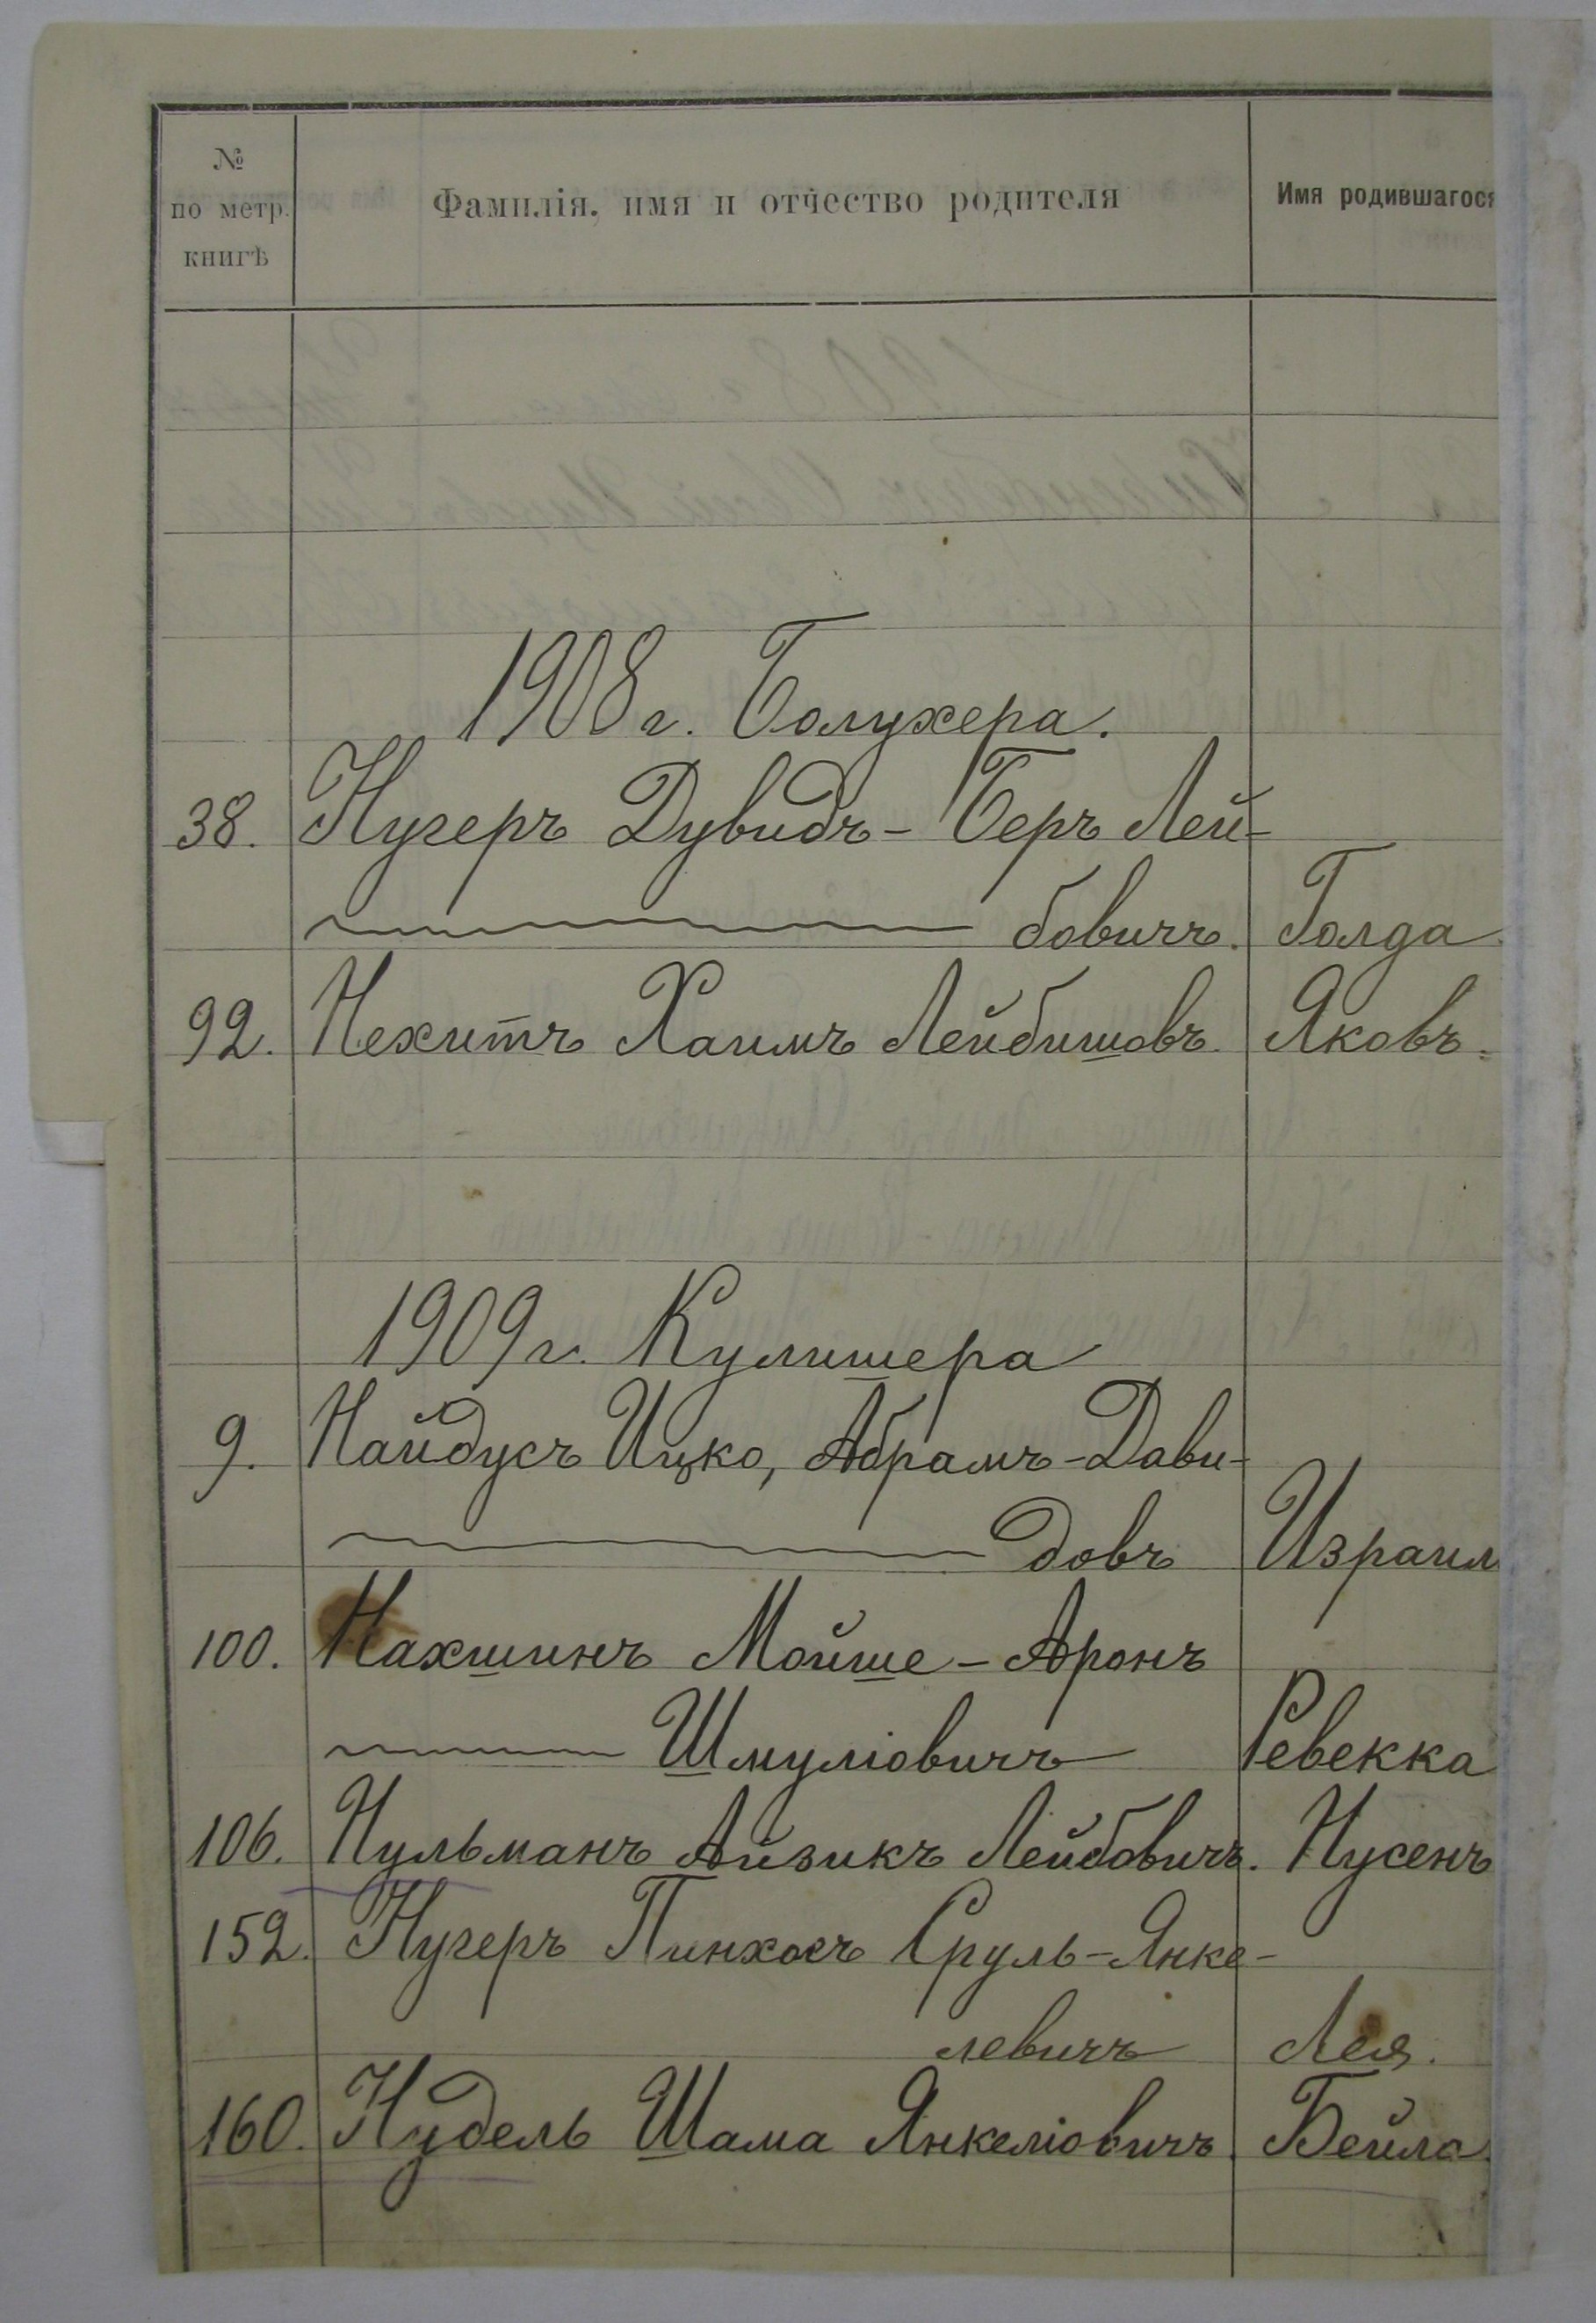 №
по метр.
книгѣ
Фамилія, имя и отчество родителя
Имя родившагося
1908 г. Болухера.
38. Нугеръ Дувидъ-Беръ Лей-
бовичъ. Голда.
92. Нехитъ Хаимъ Лейбишовъ. Яковъ.
1909 г. Кулишера
9. Найдусъ Ицко, Абрамъ-Дави-
довъ Израил
100. Нахшинъ Мойше-Аронъ
Шмуліовичъ Ревекка
106. Нульманъ Айзикъ Лейбовичъ. Нусенъ
152. Нугеръ Пинхосъ Сруль-Янке-
левичъ Лея.
160. Нудель Шама Янкеліовичъ. Бейла.